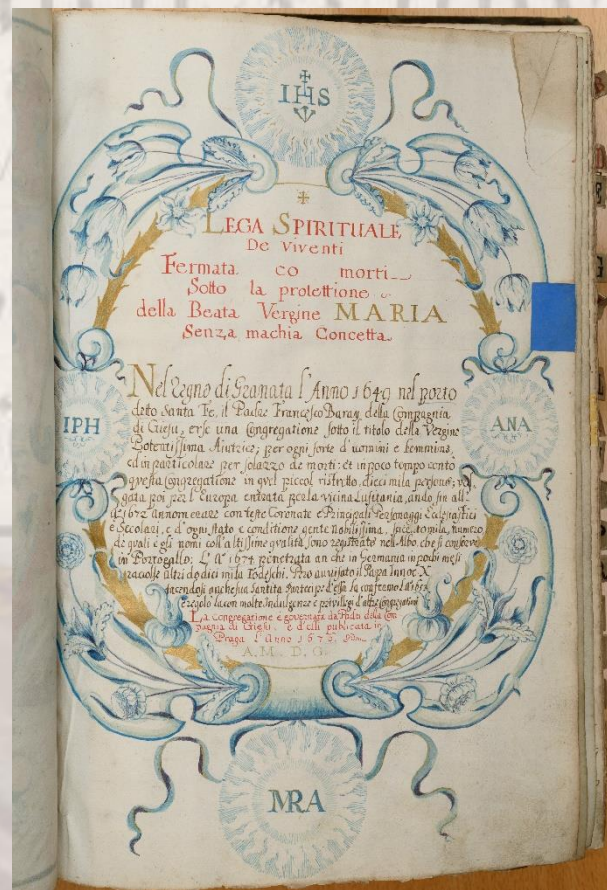 IHS
LEGA SPIRITUALE
De Viventi
Fermata co morti
Sotto la protettione
della Beata Vergine MARIA
Senza machia Concetta
Nel Regno di Granata l'Anno 1649 nel porto
deto Santa Fe, il Padre Francesco Baray della Compagnia
di Giesu, erse una Congregatione sotto il titolo della Vergine
Potentissima Aiutrice; per ogni sorte d'uomini e femmine,
ed in particolare per solazzo de morti: et in poco tempo conto
questa congregatione in quel piccol ristretto, dieci mila persone;
gata poi per l'Europa entrata per la vicina Lusitania, ando fin all'
1672 annoverare con teste Coronate e Principali Personaggi Eclesiastici
e Secolari, e d'ogni stato e conditione gente Nobilissima, mila, numero
de quali e gli nomi coll'altissime qvalità sono registrati nell'Albo che si conserva
in Portogallo: L'A° 1674 penetrata an che in Germania in pochi mesi
raccolse altri dodici mila Todeschi. avvisato il Papa Innoc X
facendosi anche sua Santita Partecipe d'essa la confermo
e regolo la con molte Indulgenze e privilegi d'altre Congregationi
La Congregatione e governata da Padri della Com
pagnia di Giesu e d'essi publicata in
Praga l'Anno
A. M. D. G.
IPH
ANA
MRA